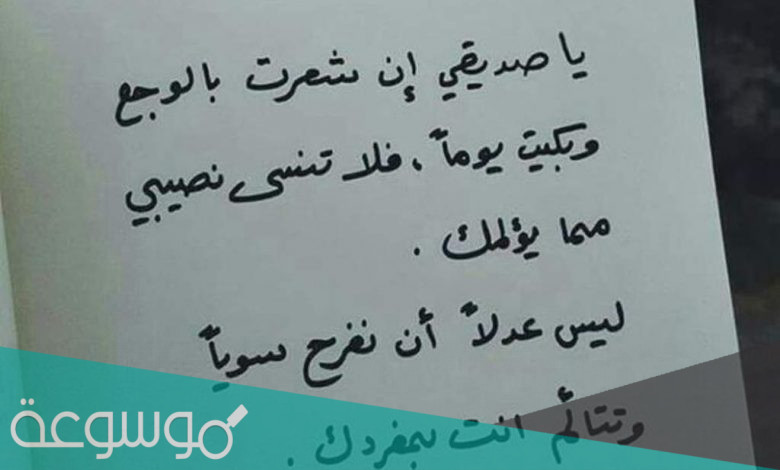 يا صديقي إن شعرت بالوجع
وبكيت يوماً، فلا تنسى نصيبي
مما يؤلمك .
ليس عدلاً أن نفرح سوياً
وتتألّم انت بمفردك .
موسوعة